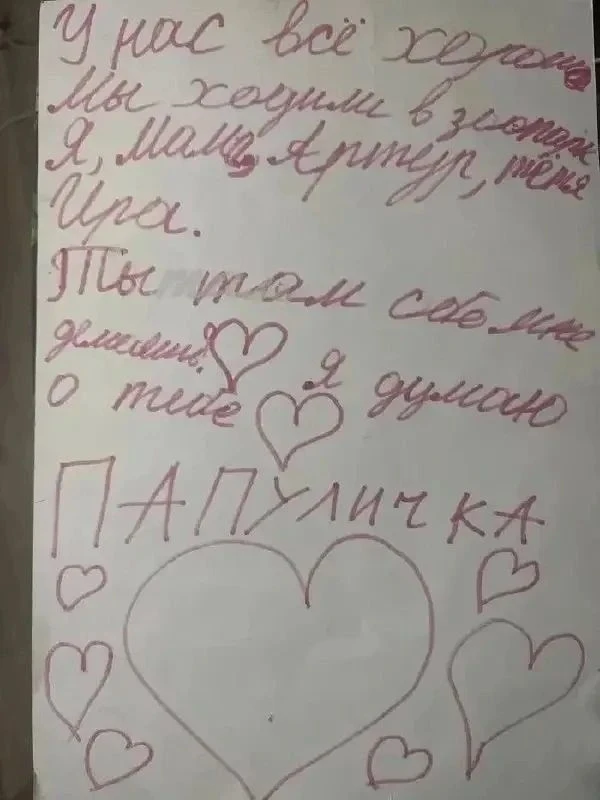 У нас всё хорошо
Мы ходили в зоопарк
Я, мама, Артур, тётя
Ира.
Ты там
делаешь? Я думаю
о тебе
ПАПУЛИЧКА